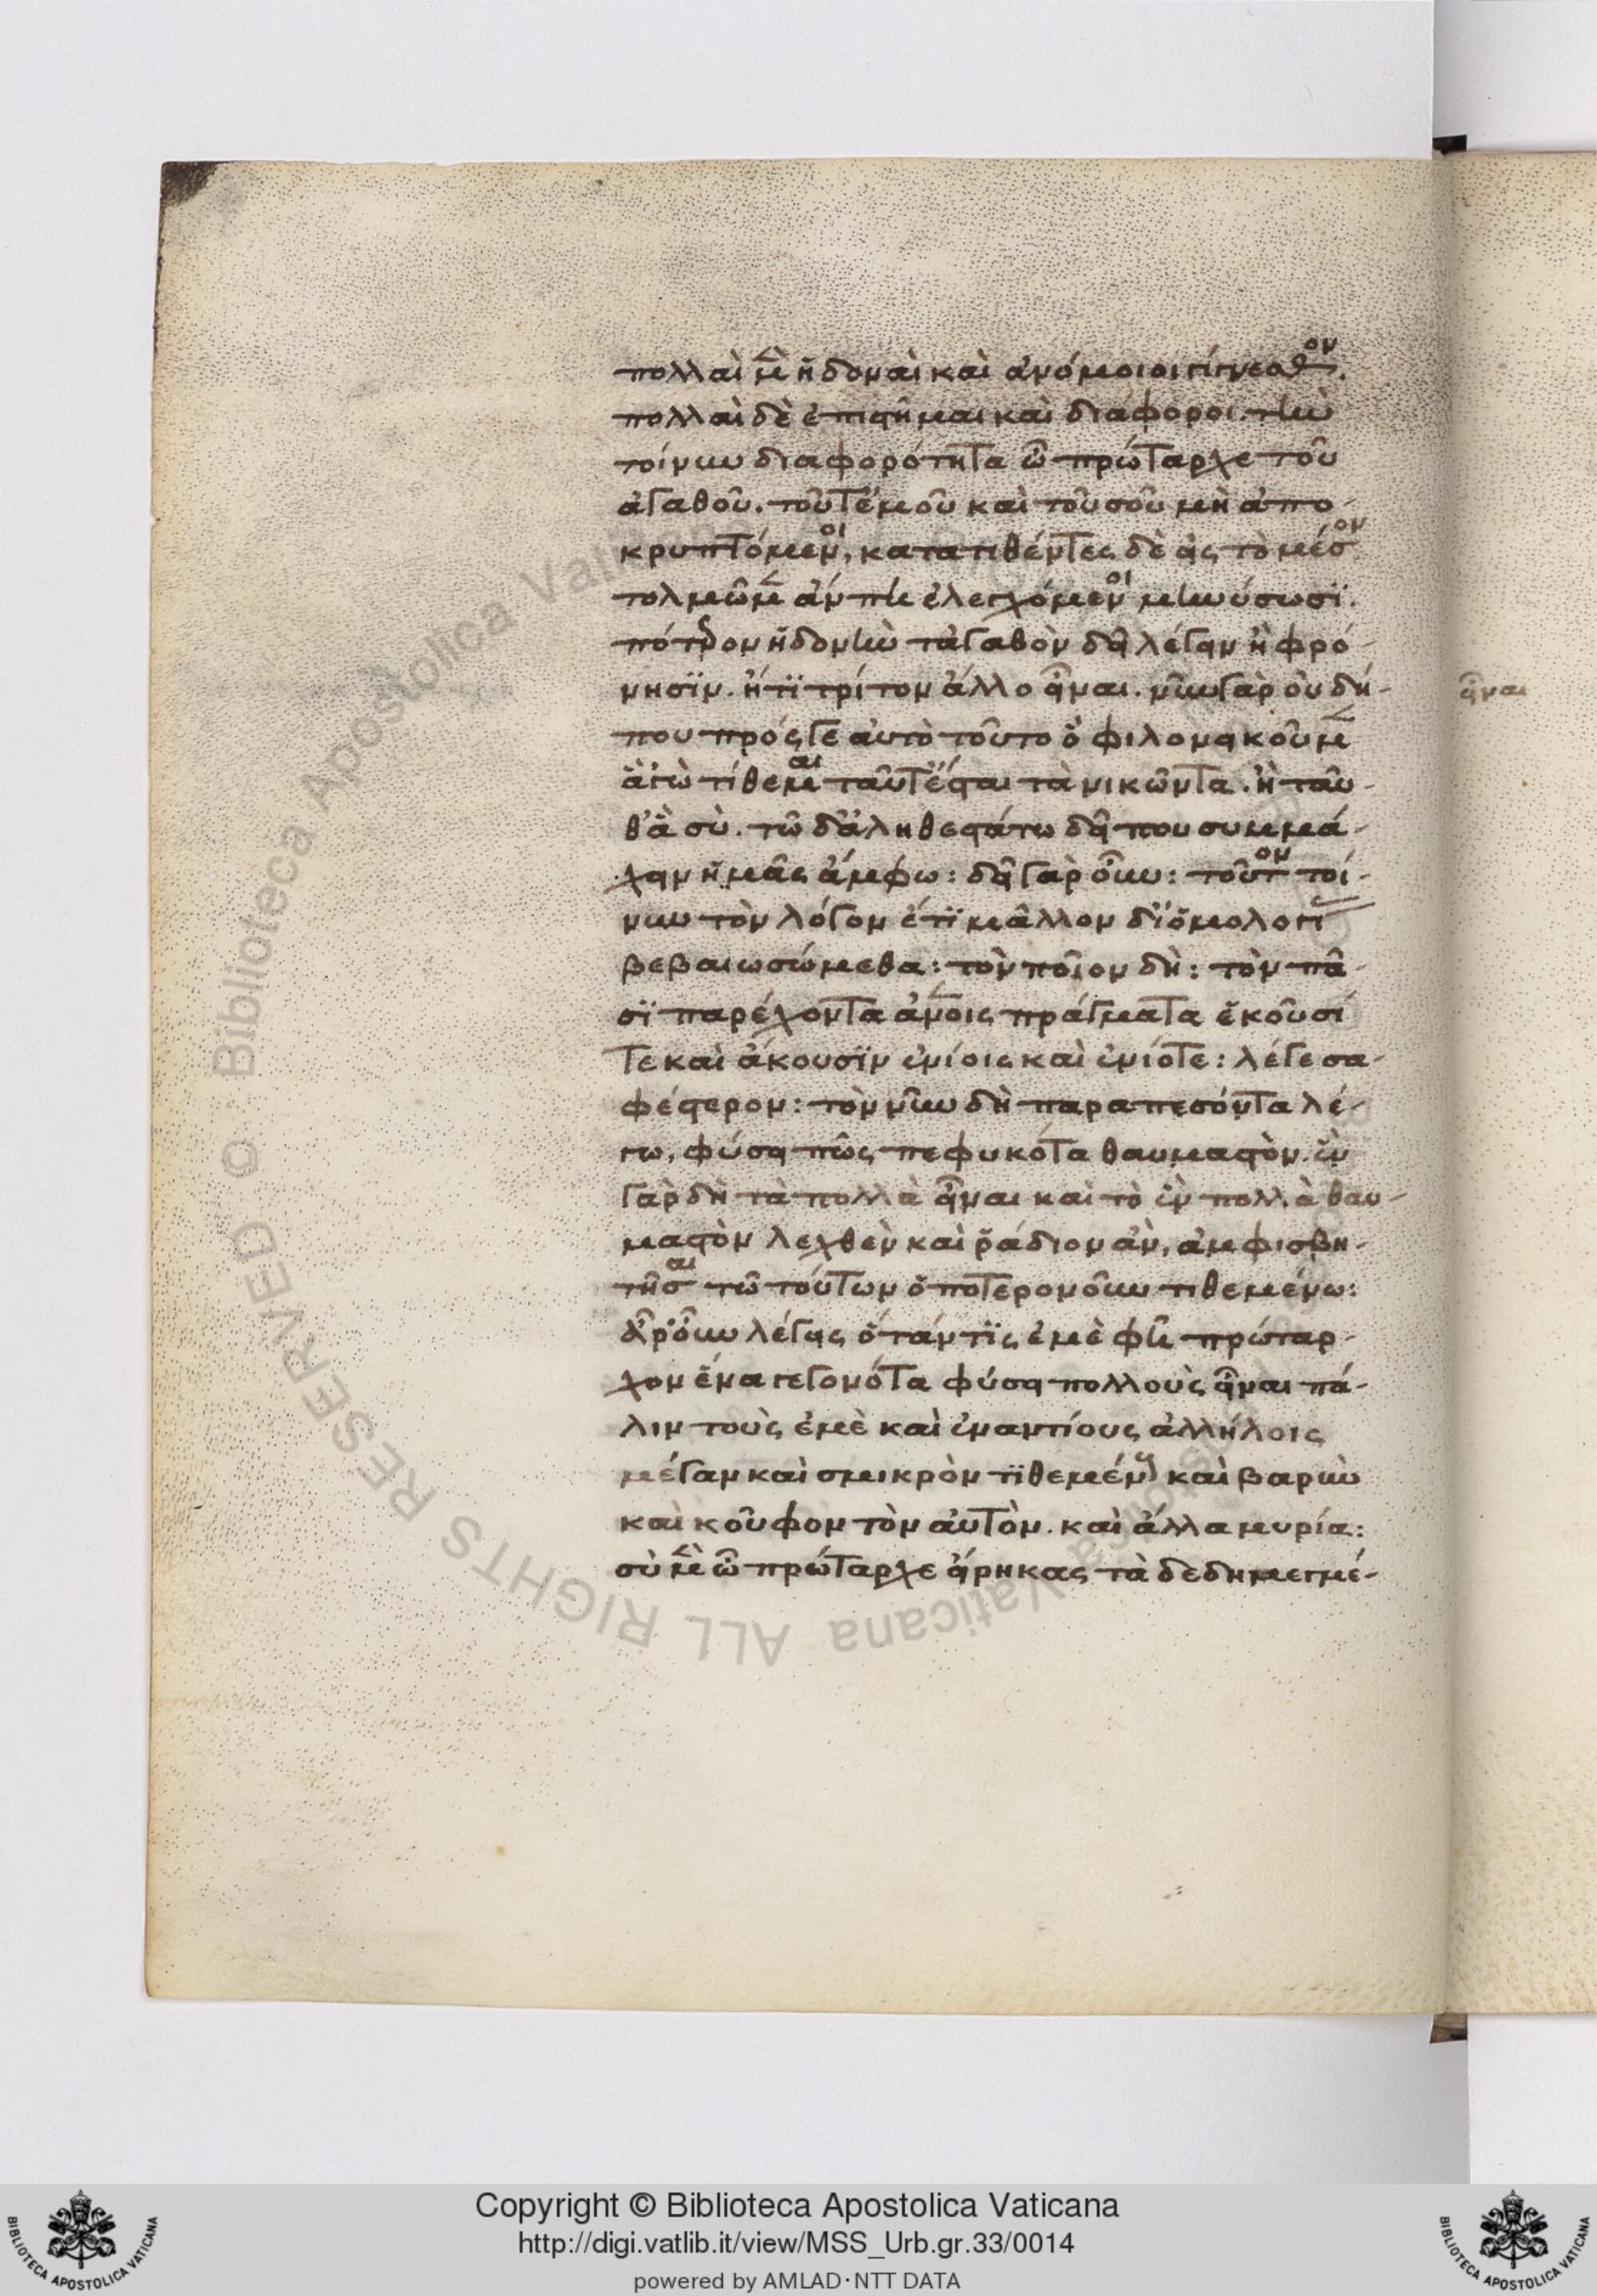 πολλαὶ μὲν ἡδοναὶ καὶ ἀνόμοιοι γίγνεσθον.
πολλαὶ δὲ ἐπιστῆμαι καὶ διάφοροι. τὴν
τοίνυν διαφορότητα ὦ πρώταρχε τοῦ
ἀγαθοῦ. τοῦτ' ἐμοῦ καὶ τοῦ σοῦ μὴ ἀπο-
κρυπτόμενοι, κατατιθέντες δὲ εἰς τὸ μέσον
τολμῶμεν ἄν πῃ ἐλεγχόμενοι μηνύσωσϊ.
πότερον ἡδονὴν τἀγαθὸν δεῖ λέγειν ἢ φρό-
νησϊν. ἤ τϊ τρίτον ἄλλο εἶναι. νῦν γὰρ οὐ δή-
που πρός γε αὐτὸ τοῦτο ὃ φιλονεικοῦμεν
ἃ ἐγὼ τίθεμαι ταῦτ' ἔσται τὰ νικῶντα. ἢ ταῦ-
θ' ἃ σὺ. τῶ δ' ἀληθεστάτω δεῖ που συμμά-
χειν ἡμᾶς ἄμφω: δεῖ γὰρ οὖν: τοῦτον τοί-
νυν τὸν λόγον ἔτϊ μᾶλλον δϊ' ὁμολογί
βεβαιωσώμεθα: τὸν ποῖον δὴ: τὸν πᾶ-
σϊ παρέχοντα ἀνοις πράγματα ἑκοῦσί
τε καὶ ἄκουσϊν ἐνίοις καὶ ἐνίοτε: λέγε σα-
φέστερον: τὸν νῦν δὴ παραπεσόντα λέ-
γω, φύσει πῶς πεφυκότα θαυμαστὸν. ἓν
γὰρ δὴ τὰ πολλὰ εἶναι καὶ τὸ ἓν πολλὰ θαυ-
μαστὸν λεχθὲν καὶ ῥάδιον ἂν, ἀμφισβη-
τῆσαι τῶ τούτων ὁποτερονοῦν τιθεμένω:
ἆρ' οὖν λέγεις ὅτάν τϊς ἐμὲ φῆ πρώταρ-
χον ἕνα γεγονότα φύσει πολλοὺς εἶναι πά-
λιν τοὺς ἐμὲ καὶ ἐναντίους ἀλλήλοις
μέγαν καὶ σμικρὸν τϊθεμένος καὶ βαρὺν
καὶ κοῦφον τὸν αὐτὸν. καὶ ἄλλα μυρία:
σὺ μὲν ὦ πρώταρχε εἴρηκας τὰ δεδημευμέ-
εἶναι
Copyright © Biblioteca Apostolica Vaticana
http://digi.vatlib.it/view/MSS_Urb.gr.33/0014
powered by AMLAD·NTT DATA
BIBLIOTECA APOSTOLICA VATICANA
BIBLIOTECA APOSTOLICA VATICANA
© Biblioteca Apostolica Vaticana ALL RIGHTS RESERVED